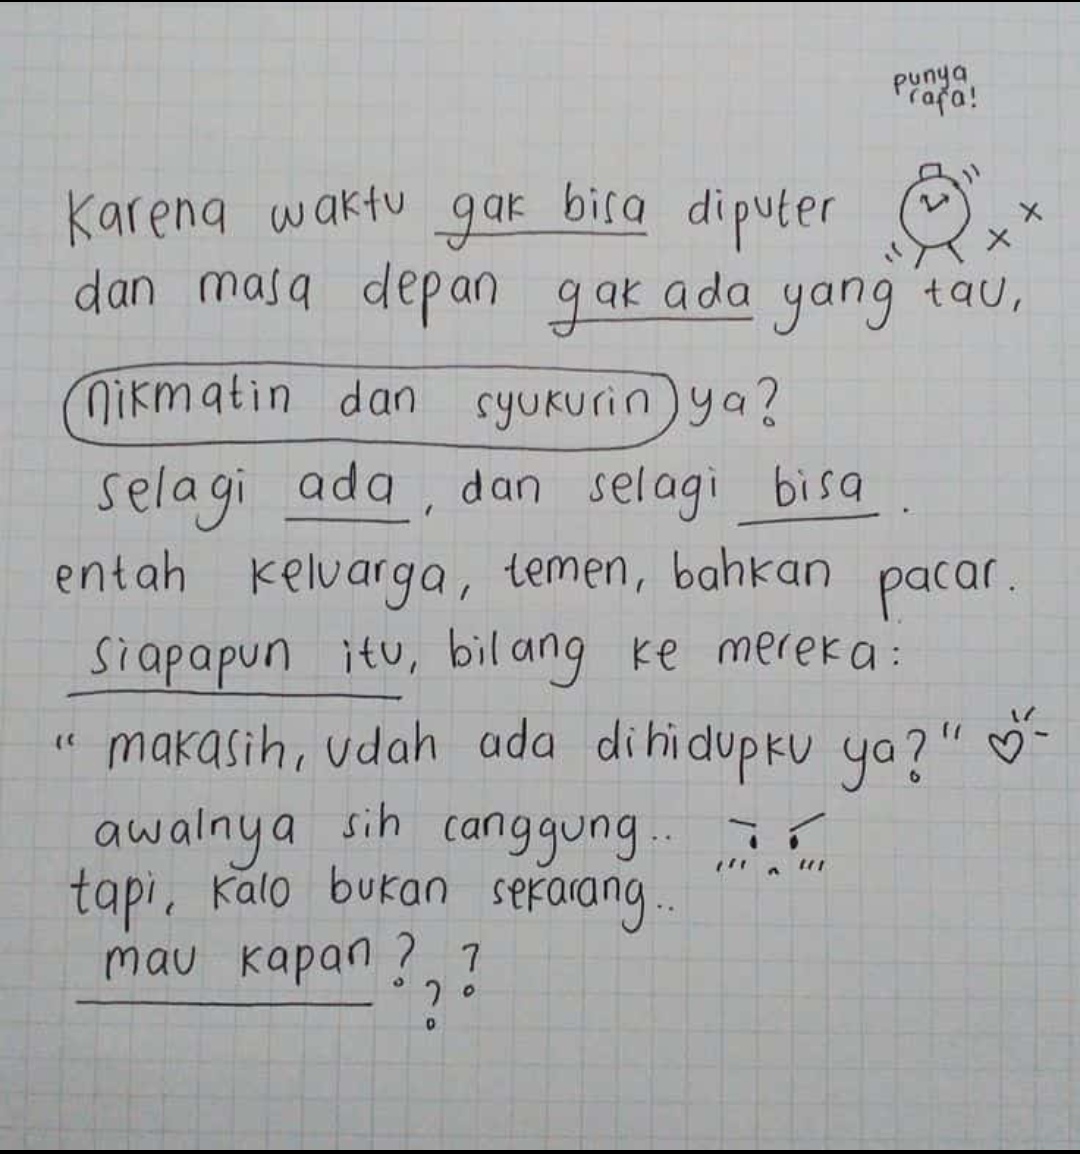 punya
rafa!
Karena waktu gak bisa diputer
dan masa depan gak ada yang tau,
nikmatin dan syukurin ya?
selagi ada, dan selagi bisa.
entah keluarga, temen, bahkan pacar.
siapapun itu, bilang ke mereka:
“ makasih, udah ada dihidupku ya? "
awalnya sih canggung..
tapi, kalo bukan sekarang..
mau kapan? ? ?